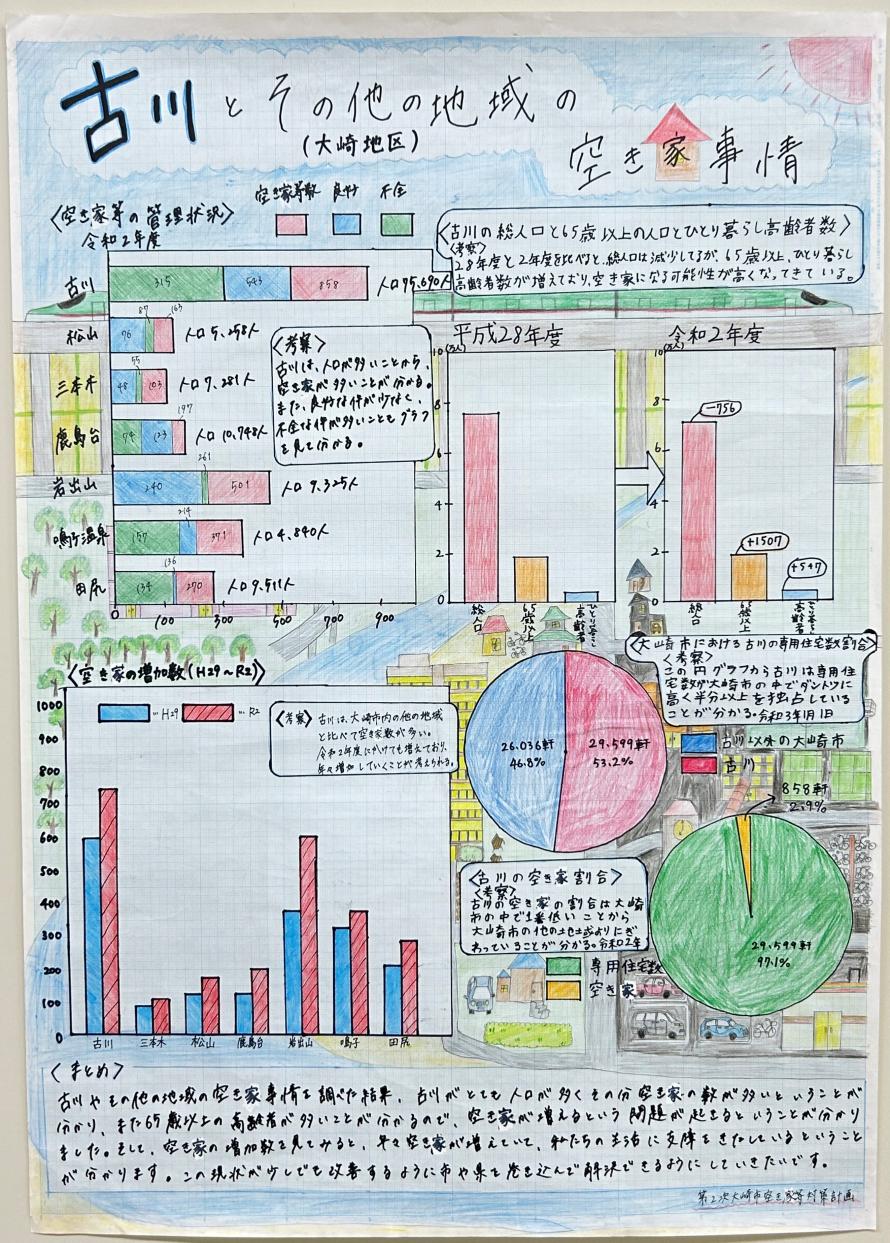 古川とその他の地域の
(大崎地区)
空き家事情
<空き家等の管理状況>
令和2年度
空き家等数 良好 不全
古川 315 543 858 人口75,690人
松山 76 87 163 人口5,258人
三本木 48 55 103 人口7,281人
鹿島台 74 123 197 人口10,748人
岩出山 240 261 501 人口9,325人
鳴子温泉 157 214 371 人口4,840人
田尻 134 136 270 人口9,511人
0 100 300 500 700 900
<考察>
古川は、人口が多いことから、
空き家が多いことが分かる。
また、良好な件が少なく、
不全な件が多いこともグラフ
を見て分かる。
<古川の総人口と65歳以上の人口とひとり暮らし高齢者数>
<考察>
28年度と2年度を比べると、総人口は減少してるが、65歳以上、ひとり暮らし
高齢者数が増えており、空き家になる可能性が高くなってきている。
平成28年度
(万人)
10
8
6
4
2
0
総人口
65歳以上
ひとり暮らし高齢者
令和2年度
(万人)
10
8
6
4
2
0
-756
+1507
+547
総人口
65歳以上
ひとり暮らし高齢者
<空き家の増加数(H29~R2)>
1000
900
800
700
600
500
400
300
200
100
0
…H29 …R2
<考察> 古川は、大崎市内の他の地域
と比べて空き家数が多い。
令和2年度にかけても増えており、
年々増加していくことが考えられる。
古川 三本木 松山 鹿島台 岩出山 鳴子 田尻
<大崎市における古川の専用住宅数割合>
<考察>
この円グラフから古川は専用住
宅数が大崎市の中でダントツに
高く半分以上を独占している
ことが分かる。令和3年1月1日
古川以外の大崎市
古川
26.036軒
46.8%
29.599軒
53.2%
<古川の空き家割合>
<考察>
古川の空き家の割合は大崎
市の中で1番低いことから
大崎市の他の土地よりにぎ
わっていることが分かる。令和2年
専用住宅数
空き家
858軒
2.9%
29.599軒
97.1%
<まとめ>
古川やその他の地域の空き家事情を調べた結果、古川がとても人口が多くその分空き家の数が多いということが
分かり、また65歳以上の高齢者が多いことが分かるので、空き家が増えるという問題が起きるということが分かり
ました。そして、空き家の増加数を見てみると、年々空き家が増えていて、私たちの生活に支障をきたしているということ
が分かります。この現状が少しでも改善するように市や県を巻き込んで解決できるようにしていきたいです。
第2次大崎市空き家等対策計画